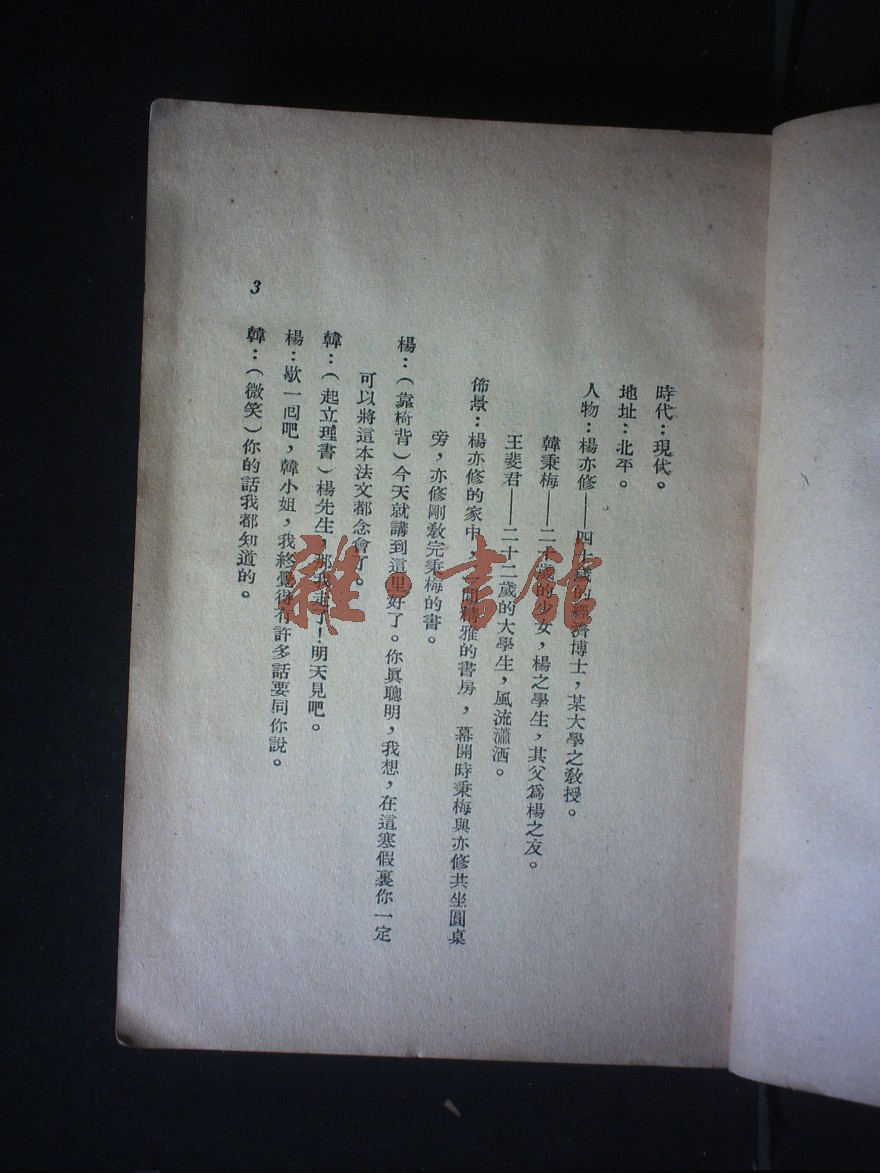 時代：現代。
地址：北平。
人物：楊亦修——四十歲的經濟博士，某大學之教授。
韓秉梅——二十歲的少女，楊之學生，其父爲楊之友。
王斐君——二十二歲的大學生，風流瀟洒。
佈景：楊亦修的家中，一間精雅的書房，幕開時秉梅與亦修共坐圓桌
旁，亦修剛教完秉梅的書。
楊：（靠椅背）今天就講到這里好了。你眞聰明，我想，在這寒假裏你一定
可以將這本法文都念會了。
韓：（起立理書）楊先生，那我走了！明天見吧。
楊：歇一囘吧，韓小姐，我終覺得有許多話要同你說。
韓：（微笑）你的話我都知道的。
3
雜·書館